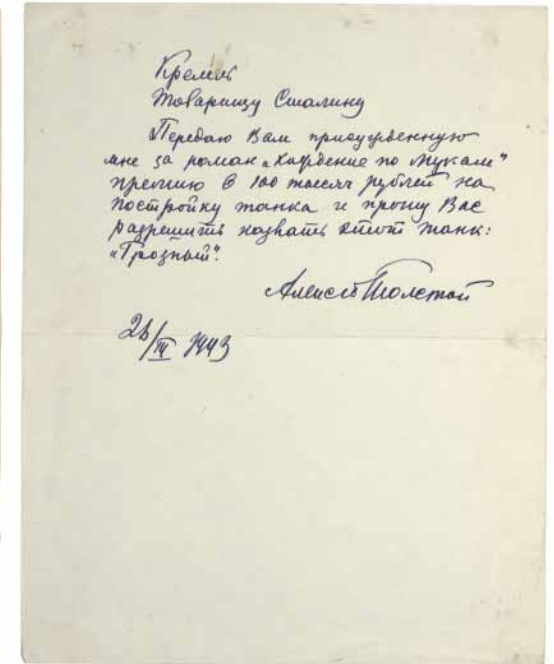 Кремль
Товарищу Сталину
Передаю Вам присужденную
мне за роман „Хождение по мукам"
премию в 100 тысяч рублей на
постройку танка и прошу Вас
разрешить назвать этот танк:
„Грозный".
Алексей Толстой
26/III 1943